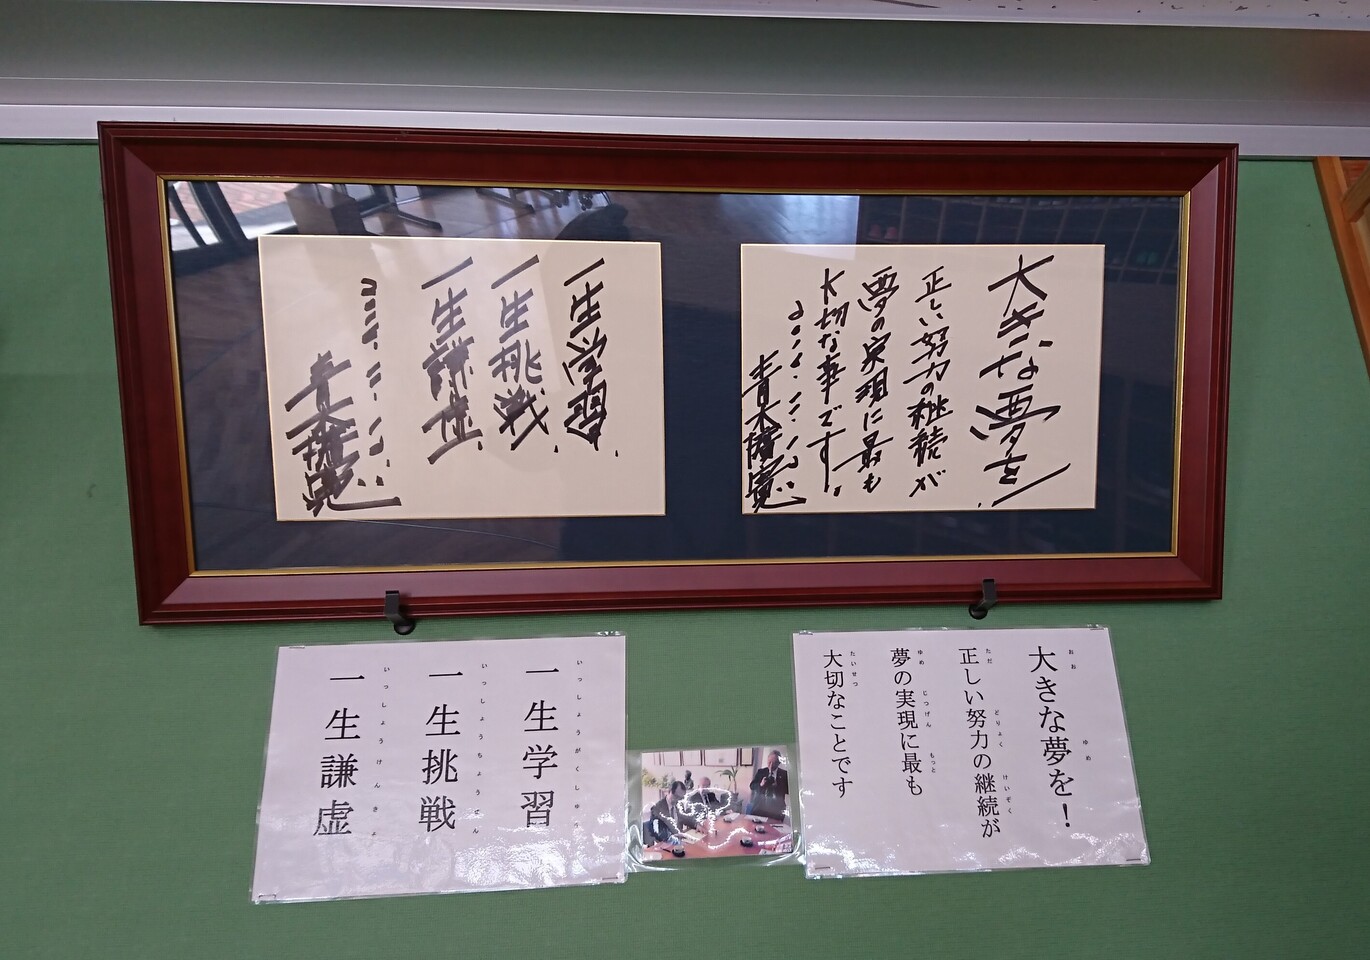 大きな夢を!
正しい努力の継続が
夢の実現に最も
大切な事です.
青木擴憲
一生学習.
一生挑戦.
一生謙虚.
青木擴憲
おお ゆめ
大きな夢を！
ただ どりょく けいぞく
正しい努力の継続が
ゆめ じつげん もっと
夢の実現に最も
たいせつ
大切なことです
いっしょうがくしゅう
一生学習
いっしょうちょうせん
一生挑戦
いっしょうけんきょ
一生謙虚